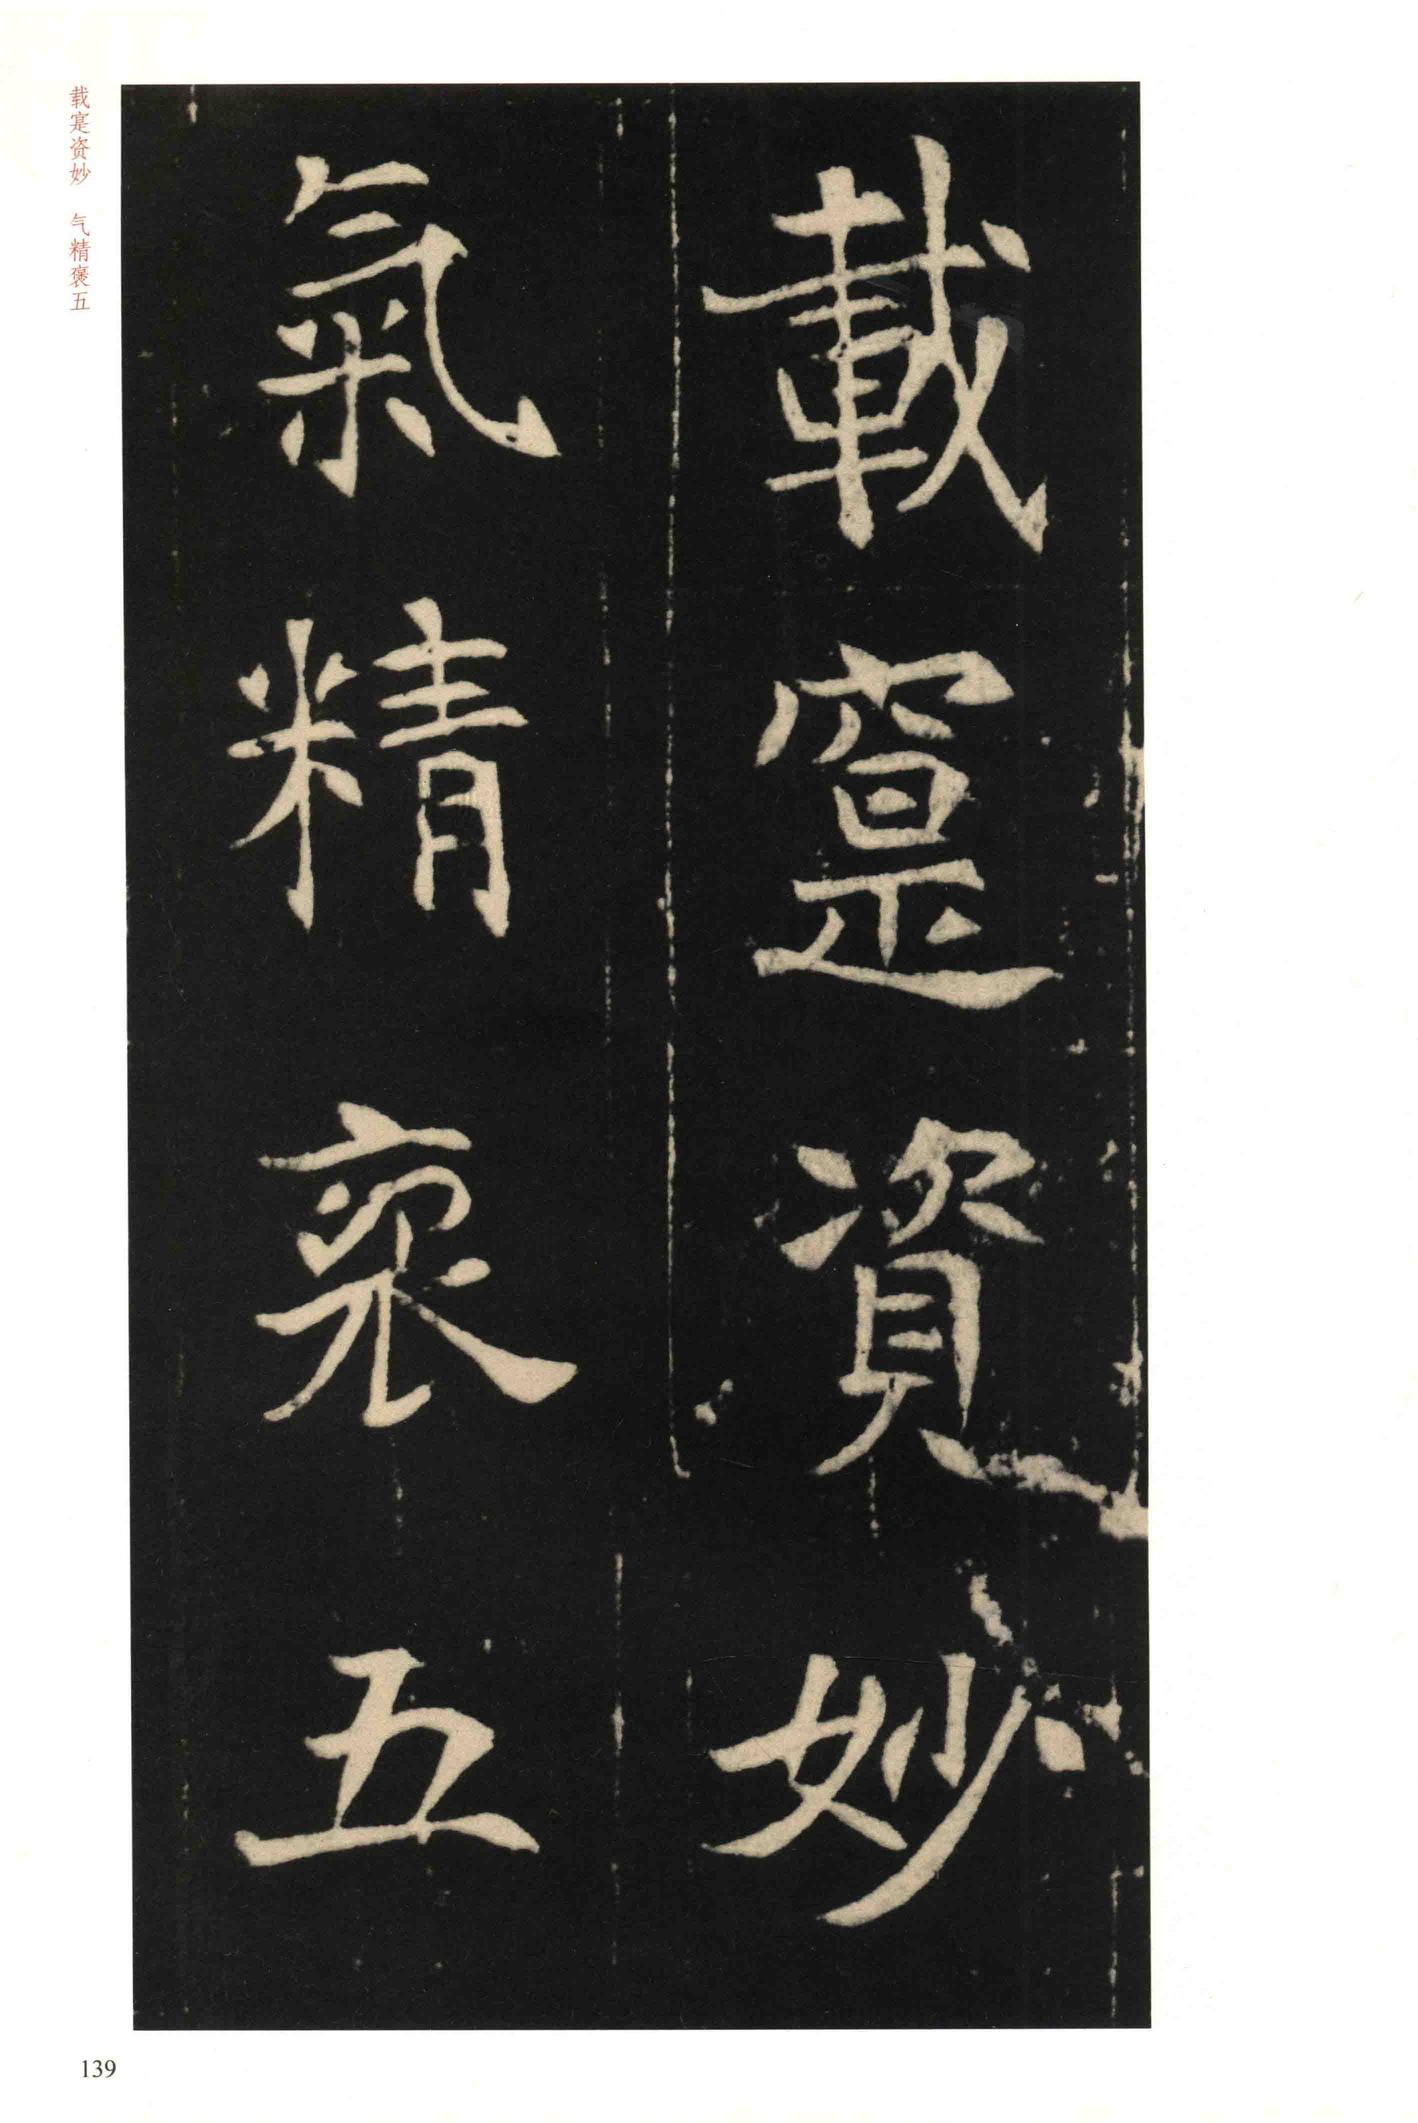 載寔資妙
氣精裒五
载寔资妙　气精褒五
139